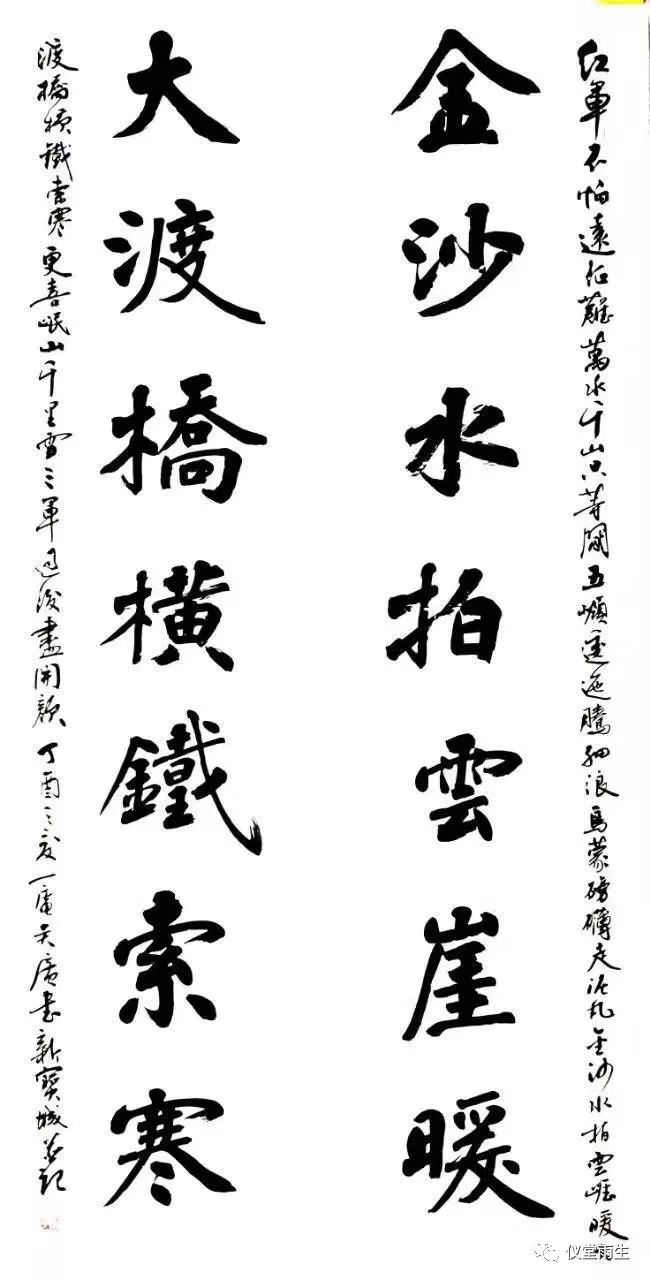 紅軍不怕遠征難萬水千山只等閑五嶺逶迤騰細浪烏蒙磅礴走泥丸金沙水拍雲崖暖大
金沙水拍雲崖暖
大渡橋橫鐵索寒
渡橋橫鐵索寒更喜岷山千里雪三軍過後盡開顏丁酉之夏一庵吴廣書新寶城并記
仪堂雨生